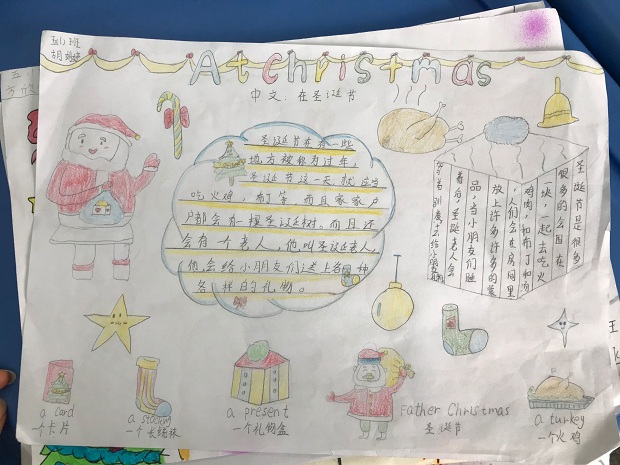 五(1)班
At christmas
中文：在圣诞节
圣诞节在有一些
地方被称为过年，
圣诞节这一天就应当
吃火鸡，布丁等，而且家家户
户都会有一棵圣诞树。而且还
会有一个老人，他叫圣诞老人。
他会给小朋友们送上各种
各样的礼物。
圣诞节是很多
很多的会围在
一块，一起去吃火
鸡肉，和布丁和
，人们会在房间里
放上许多许多的
品，当小朋友们睡
着的，圣诞老人会
a card
一个卡片
a stocking
一个长筒袜
a present
一个礼物盒
Father Christmas
圣诞节
a turkey
一个火鸡